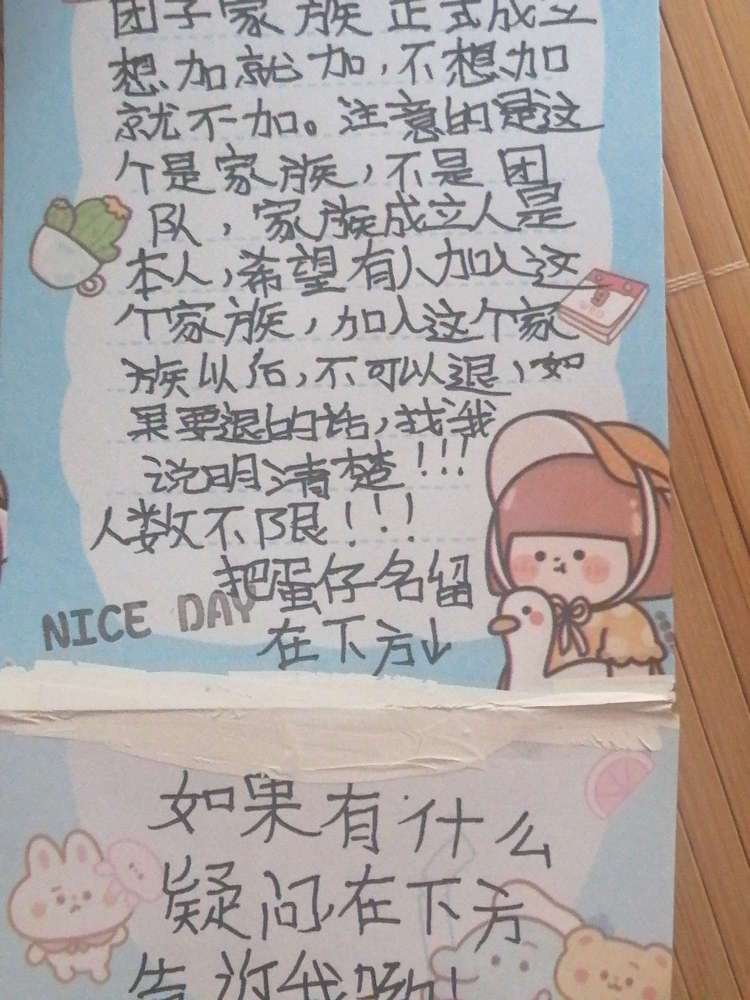 团子家族正式成立
想加就加,不想加
就不加。注意的是这
个是家族,不是团
队,家族成立人是
本人,希望有人加入这
个家族,加入这个家
族以后,不可以退,如
果要退的话,找我
说明清楚!!!
人数不限!!!
把蛋仔名留
NICE DAY
在下方↓
如果有什么
疑问在下方
告诉我哟!